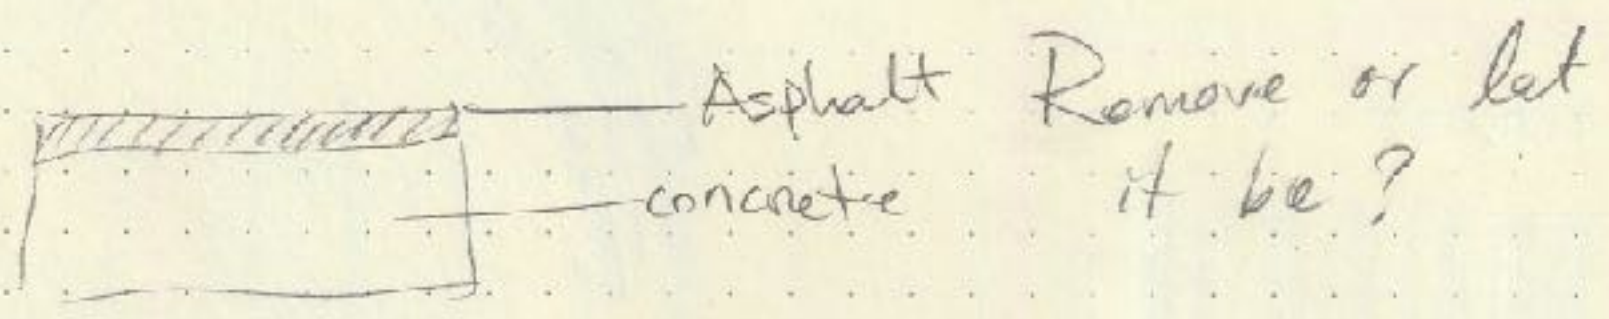 Asphalt Remove or let
concrete it be?